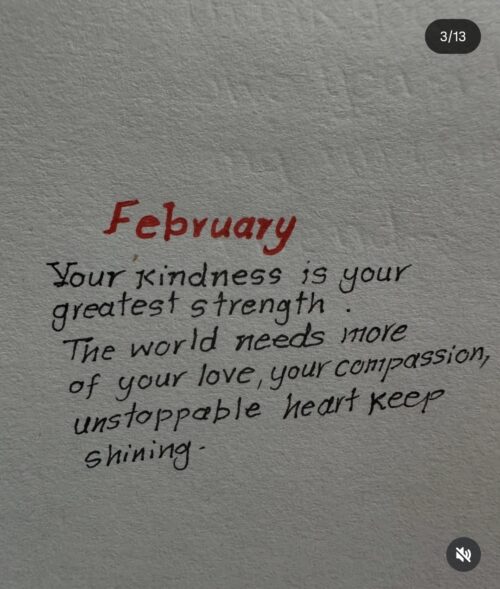 3/13
February
Your kindness is your
greatest strength.
The world needs more
of your love, your compassion,
unstoppable heart keep
shining.